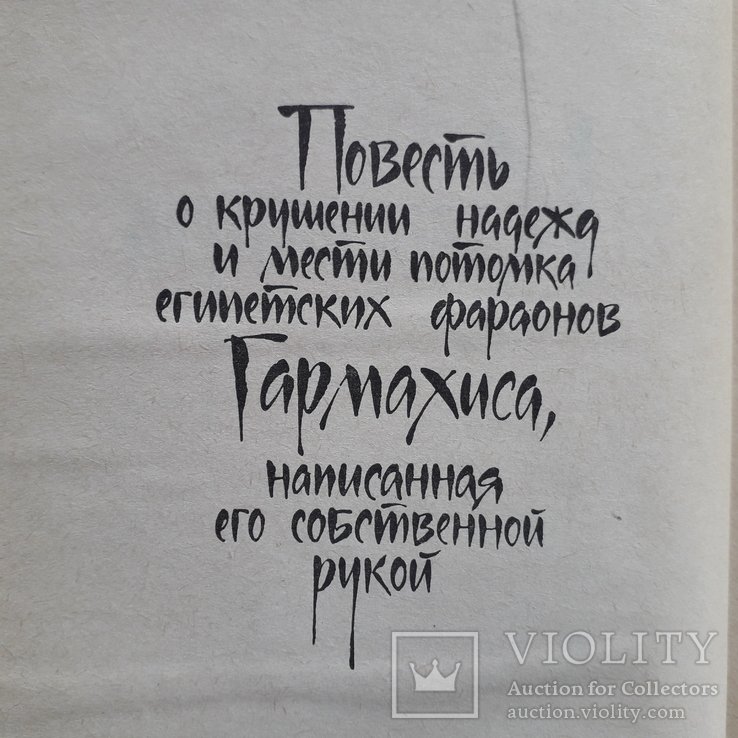 Повесть
о крушении надежд
и мести потомка
египетских фараонов
Гармахиса,
написанная
его собственной
рукой
VIOLITY
Auction for Collectors
auction.violity.com